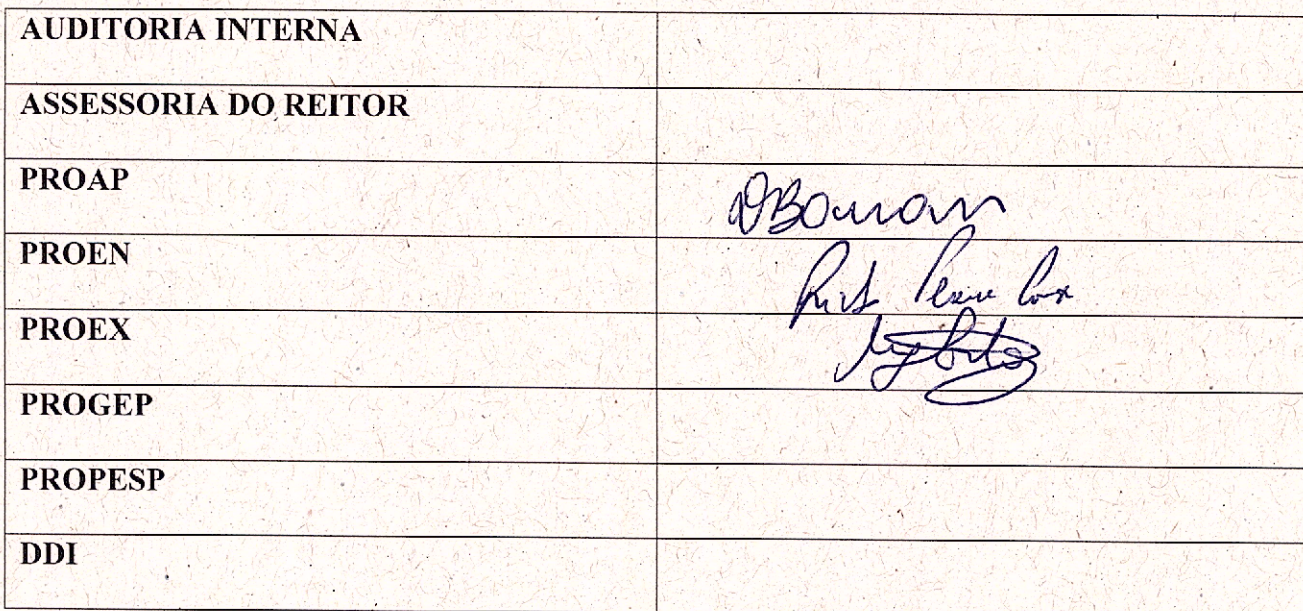 AUDITORIA INTERNA
ASSESSORIA DO REITOR
PROAP
PROEN
PROEX
PROGEP
PROPESP
DDI